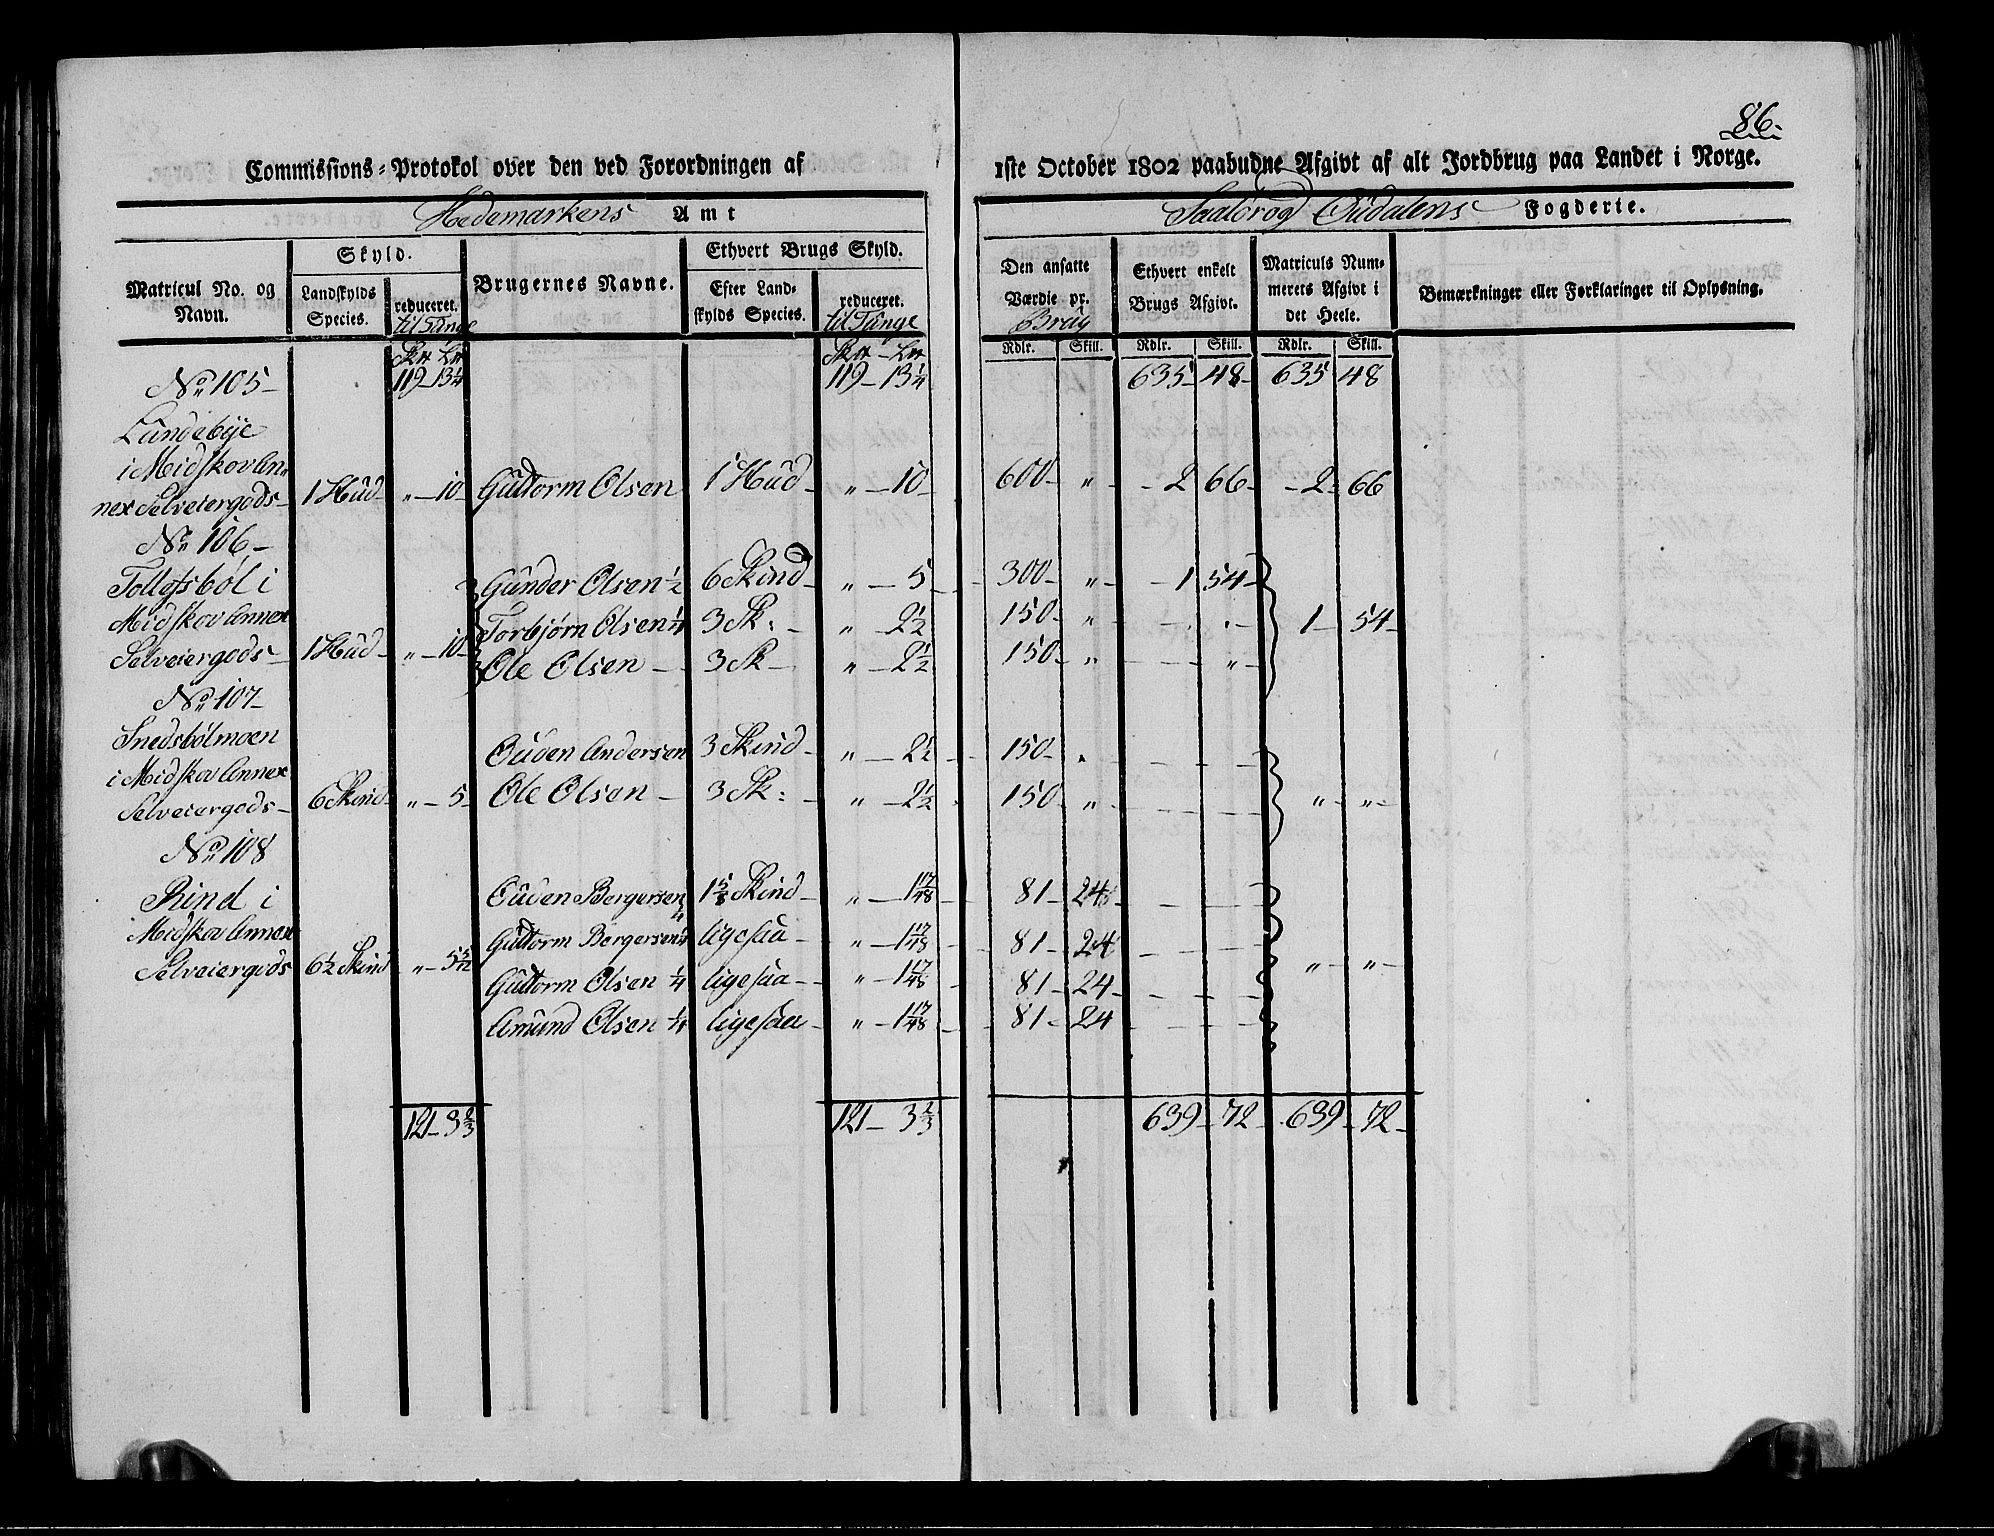 86.
Commissions-Protokol over den ved Forordningen af 1ste October 1802 paabudne Afgivt af alt Jordbrug paa Landet i Norge.
Hedemarkens Amt Saalör og Oüdalens Fogderie.
Matricul No. og Navn. Skyld. Landskylds Species. reduceret. til Tünge Brugernes Navne. Ethvert Brugs Skyld. Efter Landskylds Species. reduceret. til Tünge Den ansatte Værdie pr. Brüg Ethvert enkelt Brugs Afgivt. Matriculs Nummerets Afgivt i det Heele. Bemærkninger eller Forklaringer til Oplysning.
Rdlr. Skill. Rdlr. Skill. Rdlr. Skill.
No 105 119 - 13 1/4 119 - 13 1/4 635 - 48 - 635 48
Lündebÿe
i Midskov An=
nex Selveiergods 1 Hüd " - 10 Güttorm Olsen 1 Hüd " - 10 600 " 2 66 2 66
No 106
Tollefsböl i Günder Olsen 1/2 6 Skind " - 5 300 " 1 54
Midskov Annex Torbjørn Olsen 1/4 3 Sk: " - 2 1/2 150 " " 1 - 54
Selveiergods 1 Hüd " - 10 Ole Olsen 3 Sk " - 2 1/2 150 " "
No 107
Snedsbölmoen
i Midskov Annex Oüden Andersen 3 Skind " - 2 1/2 150 "
Selveiergods 6 Skind " - 5 Ole Olsen 3 Sk: " - 2 1/2 150 " " "
No 108
Rind i Oüden Bergersen 1/4 1 5/8 Skind " - 1 17/48 81 24
Midskov Annex Güttorm Bergersen 1/4 ligesaa " - 1 17/48 81 24
Selveiergods 6 1/2 Skind " - 5 5/12 Güttorm Olsen 1/4 ligesaa " - 1 17/48 81 24 " "
Amünd Olsen 1/4 ligesaa " - 1 17/48 81 24
121 - 3 2/3 121 - 3 2/3 639 - 72 639 - 72